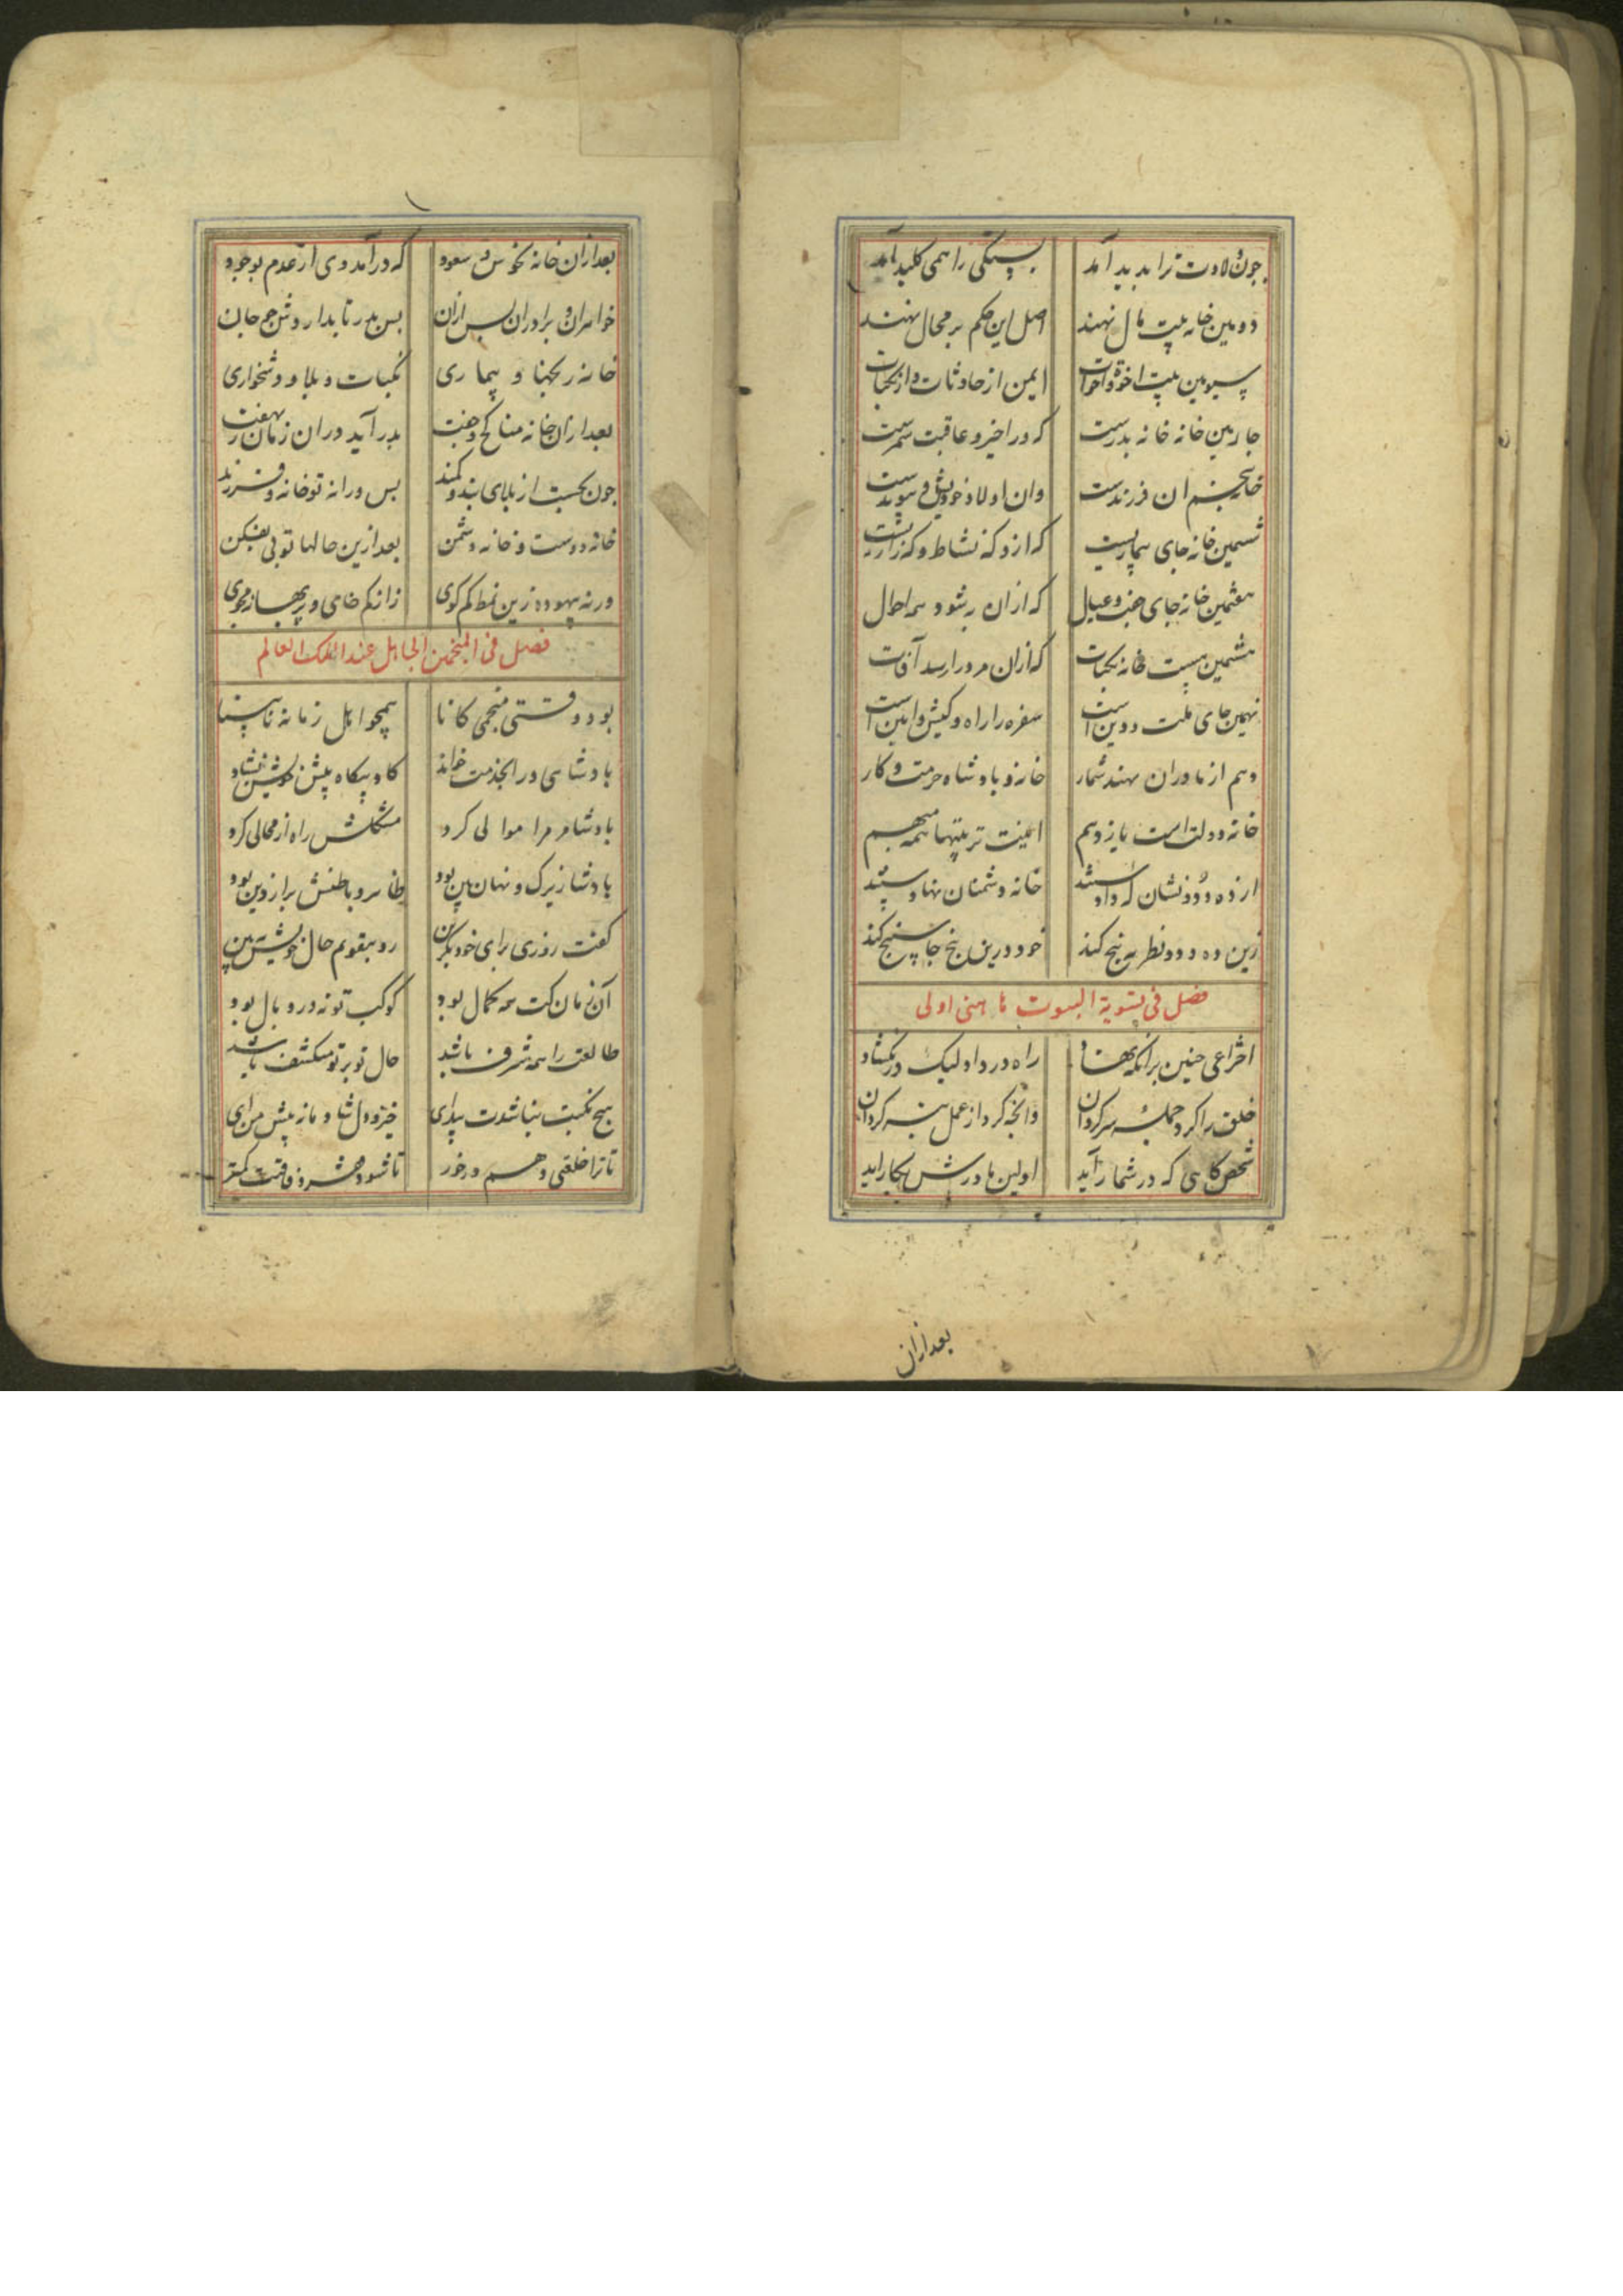 چون ولادت ترا بدید آمد بستگی را همی کلید آمد
دومین خانه بیت مال نهند اصل این حکم بر محال نهند
سیومین بیت اخوة و اخوات ایمن از حادثات و از نکبات
جارمین خانه خانه بدرست که در اخیر و عاقبت سمرست
خانه بنجم ان فرزندست وان اولاد و خویش و پیوندست
ششمین خانه جای بیماریست که ازو که نشاط و که زاریست
هفتمین خانه جای جفت و عیال که ازان به شود همه احوال
هشتمین هست خانه نکبات که ازان مرورا رسد آفات
نهمین جای ملت و دین است سفره را راه و کیش و ایین است
دهم از مادران نهند شمار خانه و بادشاه حرمت و کار
خانه دولت است یازدهم اینت تربیتها همه مبهم
از ده و دو نشان که دادستند خانه دشمنان نهادستند
زین ده و دو نظر به بنج کند خود درین بنج جا سنج کند
فصل فی تسویة البیوت ما هی اولی
اختراعی جنین بر انکه نهاد راه در داد لیک در نکشاد
خلق را کرد جمله سرکردان وانچه کرد از عمل بتر کرد آن
شخص کاهی که در شمار آید اولین مادرش بکار اید
بعد ازان
بعد ازان خانه نحوس و سعود که درآمد وی از عدم بوجود
خواهران و برادران بس ازان بس بدر تا بدارد و شرح جان
خانه رنجها و بیماری نکبات و بلا و دشخواری
بعد ازان خانه مناکح و جفت بدر آید دران زمان ز نهفت
جون بجست از بلای بند و کمند بس ورا نه تو خانه و فرزند
خانه دوست و خانه دشمن بعد ازین حالها تو بی بفکن
ورنه بیهوده زین نمط کم کوی زانکه خامی و بر بهانه مجوی
فصل فی المنجمین الجاهل عند الملک العالم
بود وقتی منجمی کانا همچو اهل زمانه نابینا
بادشاهی ورا بخدمت خواند کاه و بیکاه پیش خویش نشاند
بادشا مر مرا موالی کرد مشکلش راه از محالی کرد
بادشا زیرک و نهان بین بود ظاهر و باطنش براز دین بود
کفت روزی برای خود بکزین رو بتقویم حال خویش ببین
آن زمان کت همه کمال بود کوکب تو نه در وبال بود
طالعت را همه شرف باشد حال تو بر تو منکشف باشد
هیچ نکبت نباشدت بیدای خیز و دل شاد مانه پیش من ای
تا ترا خلقی دهم درخور تا شود